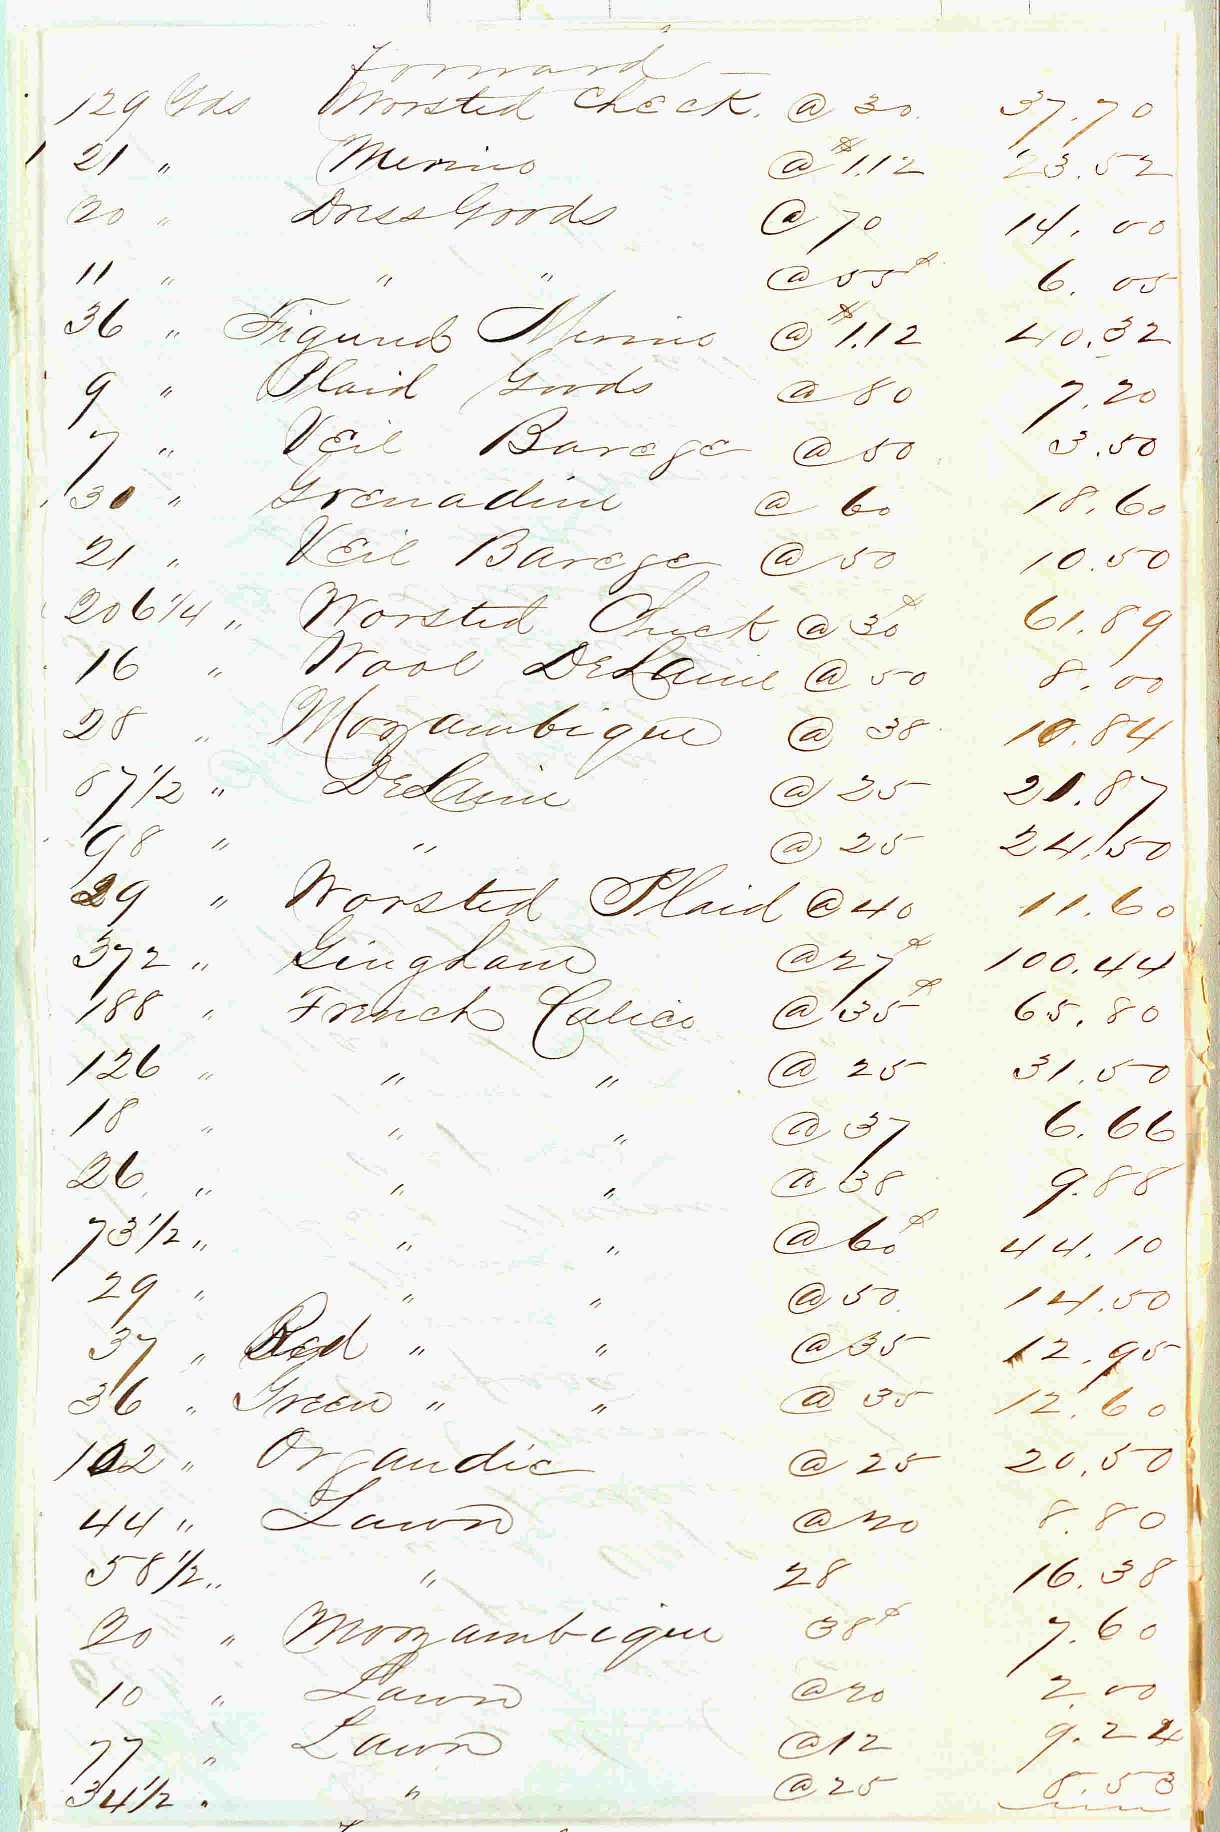 Forward
129 Yds Worsted Check. @ 30. 37.70
21 " Merino @ $1.12 23.52
20 " Dress Goods @ 70 14.00
11 " " " @ 55¢ 6.05
36 " Figured Merino @ $1.12 40.32
9 " Plaid Goods @ 80 7.20
7 " Veil Barege @ 50 3.50
30 " Grenadine @ 60 18.60
21 " Veil Barege @ 50 10.50
206 1/4 " Worsted Check @ 30¢ 61.89
16 " Wool DeLaine @ 50 8.00
28 " Mozambique @ 38 10.84
87 1/2 " DeLaine @ 25 21.87
98 " " @ 25 24.50
29 " Worsted Plaid @ 40 11.60
372 " Gingham @ 27¢ 100.44
188 " French Calico @ 35¢ 65.80
126 " " " @ 25 31.50
18 " " " @ 37 6.66
26 " " " @ 38 9.88
73 1/2 " " " @ 60¢ 44.10
29 " " " @ 50 14.50
37 " Red " " @ 35 12.95
36 " Green " " @ 35 12.60
102 " Organdie @ 25 20.50
44 " Lawn @ 20 8.80
58 1/2 " " 28 16.38
20 " Mozambique 38¢ 7.60
10 " Lawn @ 20 2.00
77 " Lawn @ 12 9.24
34 1/2 " " @ 25 8.53